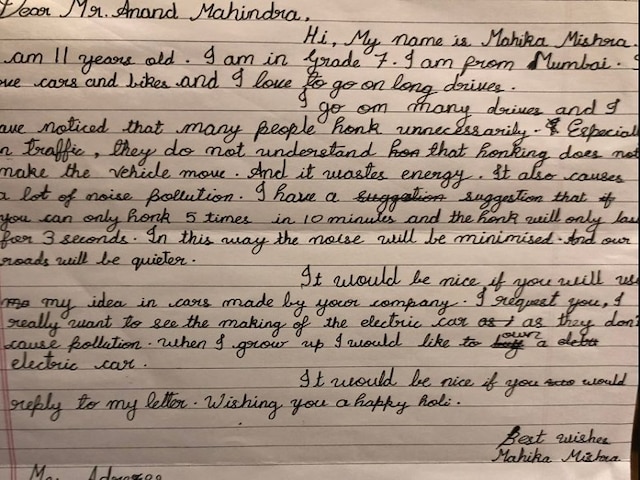 Dear Mr. Anand Mahindra,
Hi, My name is Mahika Mishra.
am 11 years old. I am in Grade 7. I am from Mumbai. I
ove cars and bikes and I love to go on long drives.
I go om many drives and I
ave noticed that many people honk unnecessarily. Especiall
n traffic, they do not understand hon that honking does not
make the vehicle move. And it wastes energy. It also causes
a lot of noise pollution. I have a suggestion suggestion that if
you can only honk 5 times in 10 minutes and the honk will only las
for 3 seconds. In this way the noise will be minimised. And our
roads will be quieter.
It would be nice if you will us
my idea in cars made by your company. I request you, I
really want to see the making of the electric car as as they don't
cause pollution. When I grow up I would like to buy own a
electric car.
It would be nice if you would
reply to my letter. Wishing you a happy holi.
Best wishes
Mahika Mishra